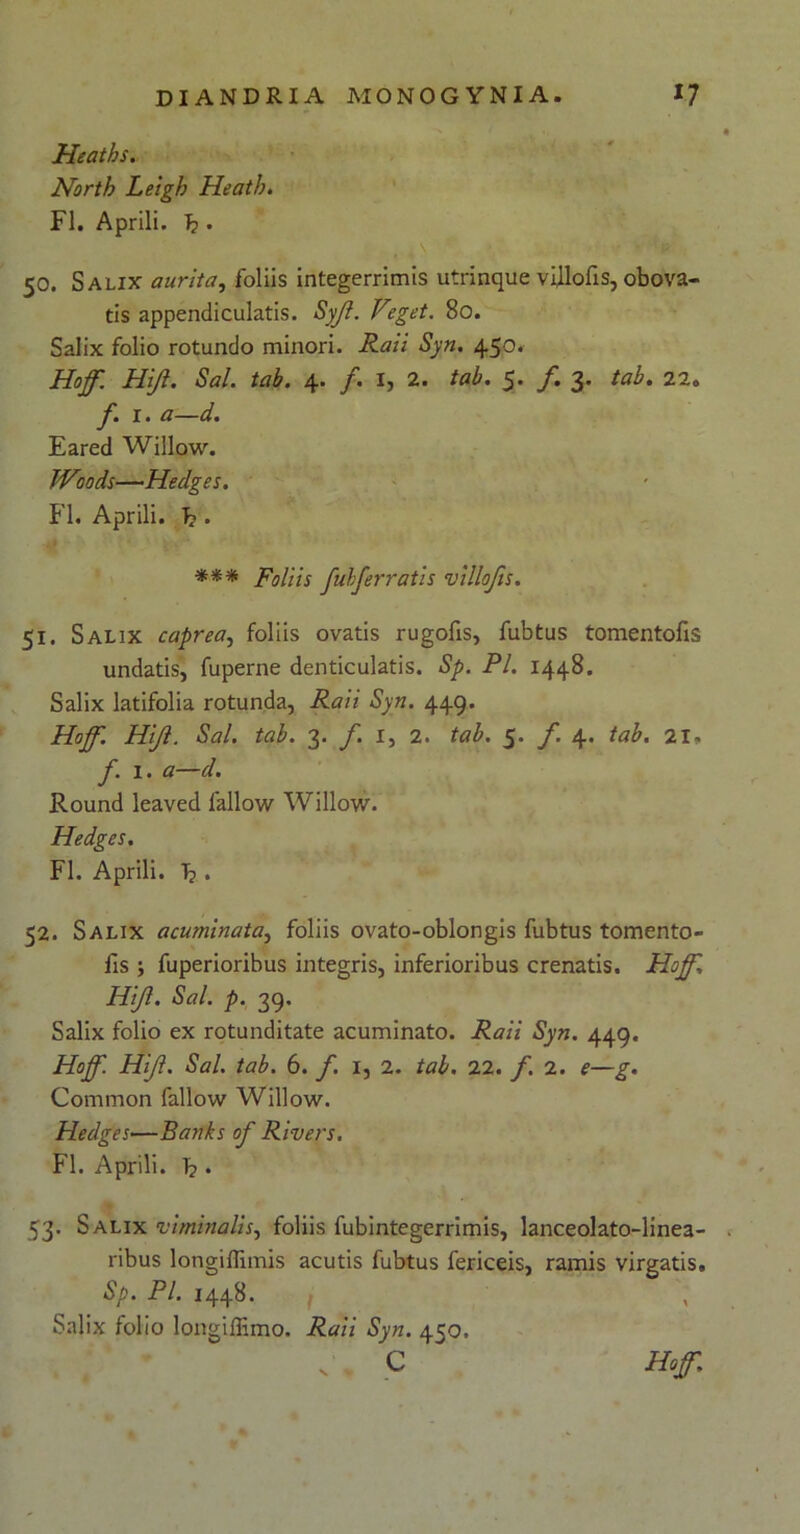 DIANDRIA MONOGYNIA. 17
Heaths.
North Leigh Heath.
Fl. Aprili. ♄.
50. SALIX aurita, foliis integerrimis utrinque villoſis, obova-
tis appendiculatis. Syſt. Veget. 80.
Salix folio rotundo minori. Raii Syn. 450.
Hoff. Hiſt. Sal. tab. 4. f. 1, 2. tab. 5. f. 3. tab. 22.
f. 1. a—d.
Eared Willow.
Woods—Hedges.
Fl. Aprili. ♄.
*** Foliis ſubſerratis villoſis.
51. SALIX caprea, foliis ovatis rugoſis, ſubtus tomentoſis
undatis, ſuperne denticulatis. Sp. Pl. 1448.
Salix latifolia rotunda, Raii Syn. 449.
Hoff. Hiſt. Sal. tab. 3. f. 1, 2. tab. 5. f. 4. tab. 21.
f. 1. a—d.
Round leaved ſallow Willow.
Hedges.
Fl. Aprili. ♄.
52. SALIX acuminata, foliis ovato-oblongis ſubtus tomento-
ſis; ſuperioribus integris, inferioribus crenatis. Hoff.
Hiſt. Sal. p. 39.
Salix folio ex rotunditate acuminato. Raii Syn. 449.
Hoff. Hiſt. Sal. tab. 6. f. 1, 2. tab. 22. f. 2. e—g.
Common ſallow Willow.
Hedges—Banks of Rivers.
Fl. Aprili. ♄.
53. SALIX viminalis, foliis ſubintegerrimis, lanceolato-linea-
ribus longiſſimis acutis ſubtus ſericeis, ramis virgatis.
Sp. Pl. 1448.
Salix folio longiſſimo. Raii Syn. 450.
C Hoff.